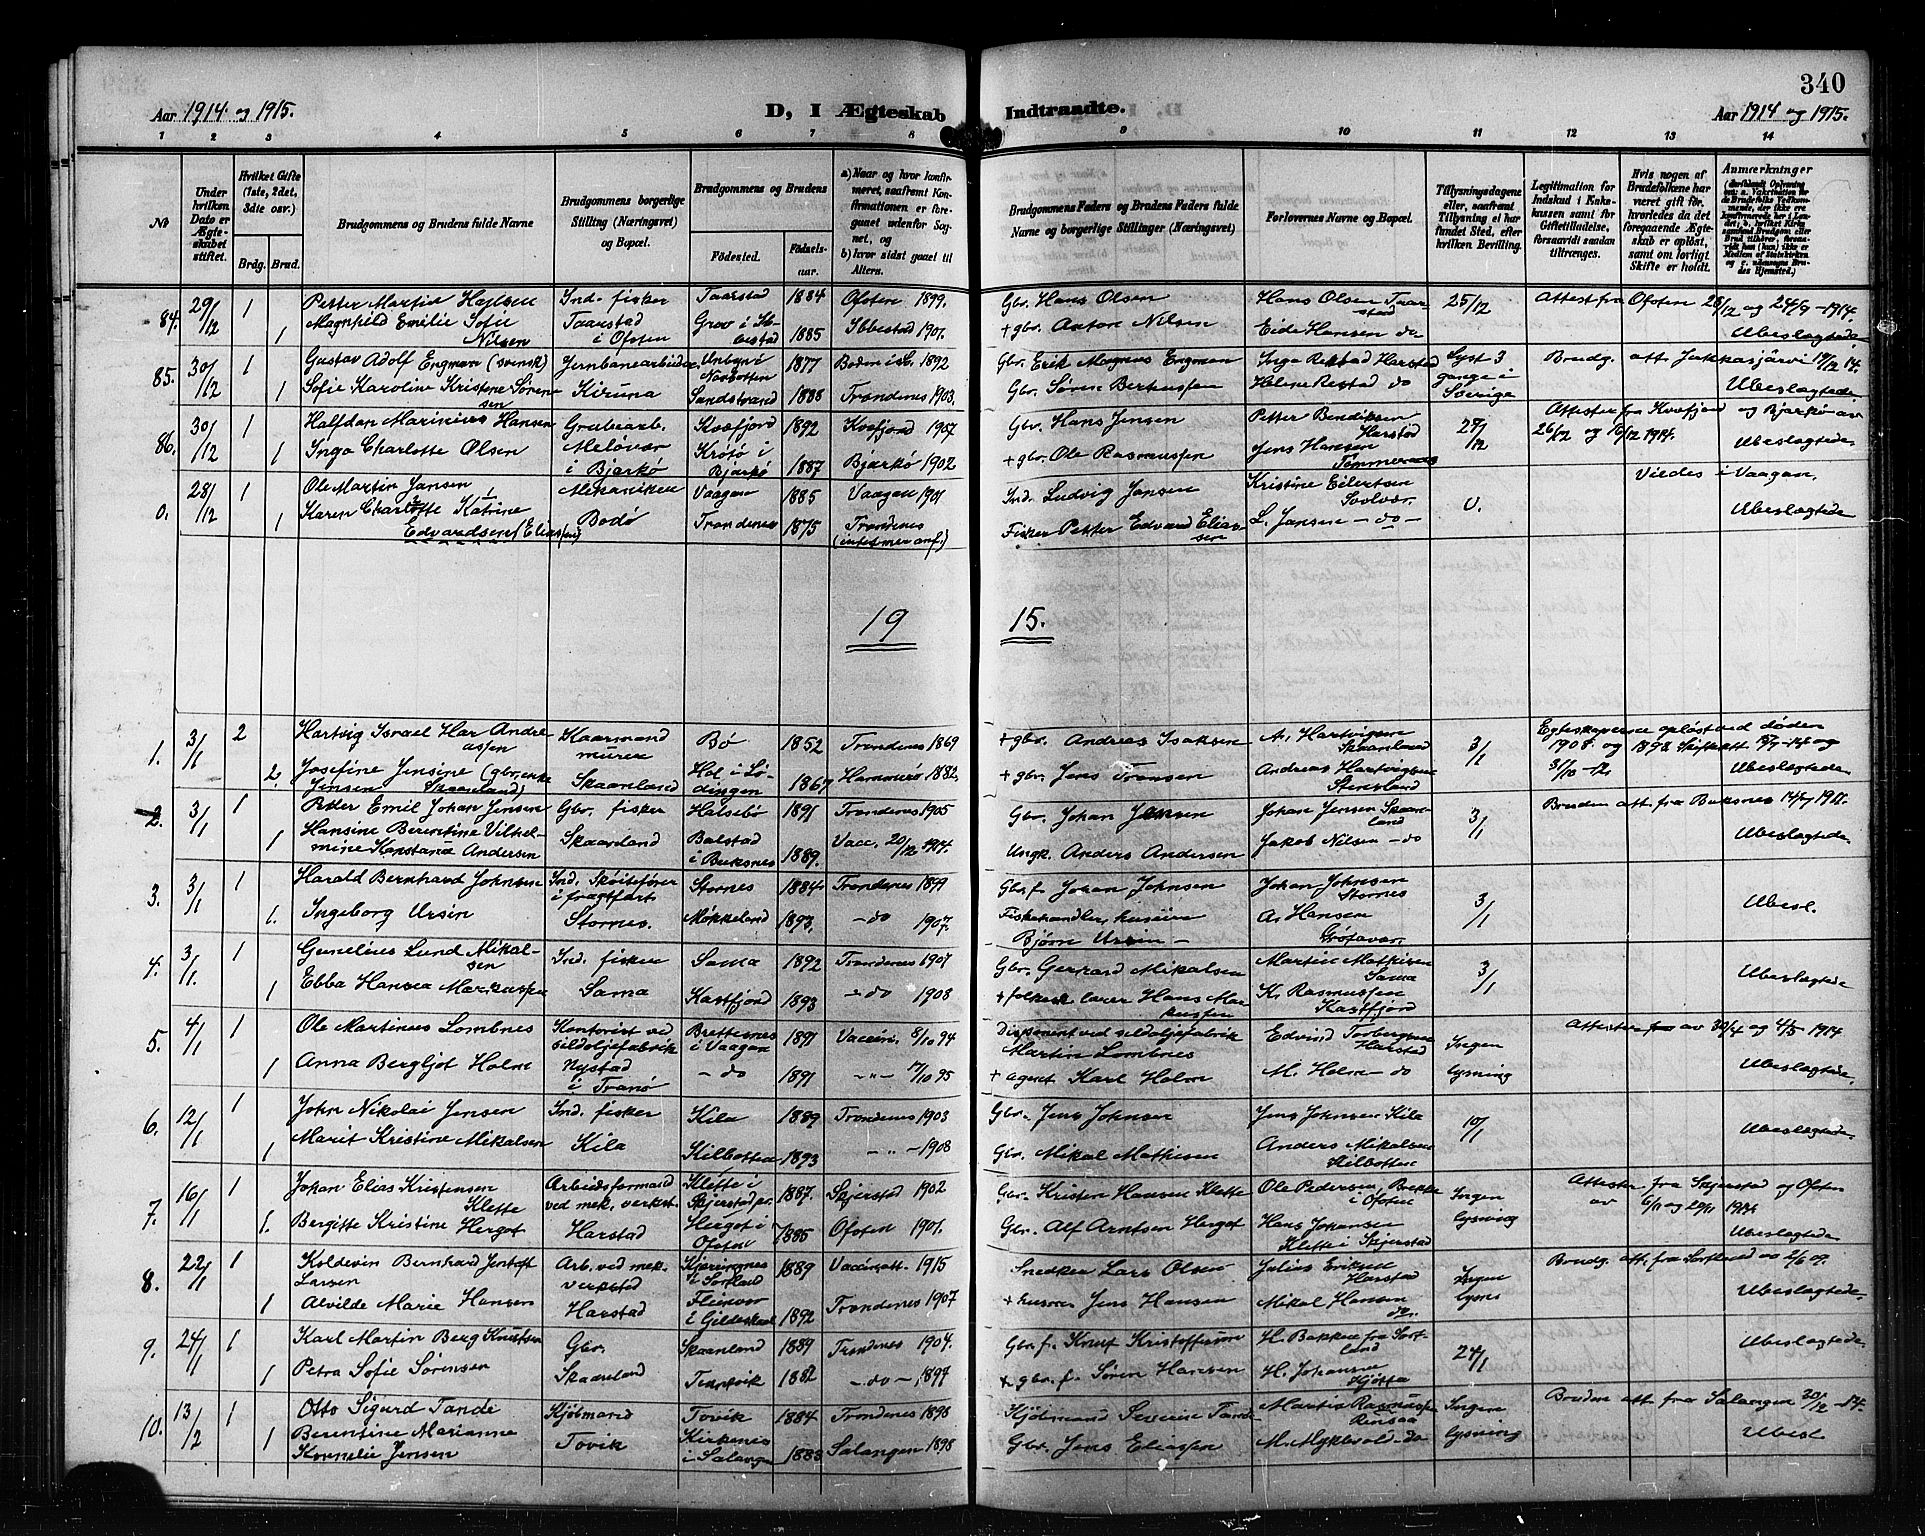 340
Aar 1914 og 1915.
D, I Ægteskab Indtraadte.
Aar 1914 og 1915.
1 2 3 4 5 6 7 8 9 10 11 12 13 14
№
Under hvilken Dato er Ægteskabet stiftet.
Hvilket Gifte (1ste, 2det, 3die osv.)
Brdg. Brud.
Brudgommens og Brudens fulde Navne
Brudgommens borgerlige Stilling (Næringsvei) og Bopæl.
Brudgommens og Brudens
Födested.
Födselsaar.
a) Naar og hvor konfirmeret, saafremt Konfirmationen er foregaaet udenfor Sognet, og
b) hvor sidst gaaet til Alters.
Brudgommens Faders og Brudens Faders fulde Navne og borgerlige Stillinger (Næringsvei)
Forlovernes Navne og Bopæl.
Tillysningsdagene eller, saafremt Tillysning ei har fundet Sted, efter hvilken Bevilling.
Legitimation for Indskud i Enkekassen samt for Giftetilladelse, forsaavidt saadan tiltrænges.
Hvis nogen af Brudefolkene har været gift før, hvorledes da det foregaaende Ægteskab er oplöst, samt om lovligt Skifte er holdt.
Anmærkninger
84. 29/12 1 Petter Martin Hansen Ind. fisker Taarstad 1884 Ofoten 1899. Gbr. Hans Olsen Hans Olsen Taarstad 25/12 Attest fra Ofoten 28/12 og 24/9 - 1914.
1 Magnhild Emilie Sofie Nilsen Taarstad i Ofoten Grov i Ibbestad 1885 Ibbestad 1901. + gbr. Anton Nilsen Eide Hansen do Ubeslagtede
85. 30/12 1 Gustav Adolf Engman (svensk) Jernbanearbeider 1877 Boden i S. 1892 Gbr. Erik Magnus Engman Inga Rekstad Harstad Lyst 3 gange i Sverige Brudg. att. Jukkasjärvi 19/12 14.
1 Sofie Karoline Kristine Sørensen Kiruna Sandstrand 1888 Trondenes 1903. Gbr. Søren Berthussen Helene Rekstad do Ubeslagtede
86. 30/12 1 Halfdan Marinius Hansen Grubearb. Kvæfjord 1892 Kvæfjord 1907 Gbr. Hans Jensen Petter Bendiksen Harstad 27/12 Attester fra Kvæfjord og Bjarkø av 26/12 og 16/12 1914.
1 Inga Charlotte Olsen Meløvær i Bjarkø Krøtø i Bjarkø 1887 Bjarkø 1902 + gbr. Ole Rasmussen Jens Hansen Ubeslagtede
0. 28/12 1 Ole Martin Jansen Mekaniker Vaagan 1885 Vaagan 1901 Ind. Ludvig Jansen Kristine Eilertsen Svolvær 0. Viedes i Vaagan.
1 Karen Charlotte Katrine Edvardsen (Eliassen) Bodø Trondenes 1875 Trondenes (intet mer anf.) Fisker Petter Edvard Eliassen L. Jansen - do - Ubeslagtede
19 15.
1. 3/1 2 Hartvig Israel Har Andreassen Skaarmand murer Bø 1852 Trondenes 1869 + gbr. Andreas Isaksen A. Hartvigsen Skaanland 3/1 Egteskaperne opløst ved døden 1908 og 1898
2. Josefine Jensine Jensen (gbr. enke Skaanland) Skaanland Hol i Lødingen 1867 Hammerø 1882. + gbr. Jens Tronsen Andreas Hartvigsen Stensland 31/10 - 12. Ubeslagtede
2. 3/1 1 Peder Emil Johan Jensen Gbr. fisker Halsebø 1891 Trondenes 1905 Gbr. Johan Jensen Johan Jensen Skaanland 3/1 Bruden att. fra Buksnes
1 Hansine Berentine Vilhelmine Konstanse Andersen Skaanland Balstad i Buksnes 1889. Vacc. 20/12 1914. Ungk. Anders Andersen Jakob Nilsen - do Ubeslagtede
3. 3/1 1 Harald Bernhard Johnsen Ind. Skøitefører i fragtfart Stornes 1884 Trondenes 1899 Gbr. f. Johan Johnsen Johan Johnsen Stornes 3/1
1. Ingeborg Ursin Stornes. Møkkeland 1893. - do 1907. Fiskehandler, Bjørn Ursin - A. Hansen Grøtavær. Ubesl.
4. 3/1 1 Gunelius Lund Mikalsen Ind. fisker Sama 1892 Trondenes 1907 Gbr. Gerhard Mikalsen Martin Mathisen Sama 3/1
1 Ebba Hansea Markussen Sama Kastfjord 1893 - do 1908 + folkesk. lærer Hans Markussen K. Rasmussen Kastfjord Ubeslagtede
5. 4/1 1 Ole Martinus Lombnes Kontorist ved sildoljefabrik Brettesnes i Vaagan 1891 Vaccin. 8/10 94 Disponent ved sildoljefabrik Martin Lombnes Edvind Torbergsen Harstad Ingen lysning Attester av 30/4 og 4/5 1914
1 Anna Bergljot Holm Nystad i Tranø - do 1891 - " - 7/10 95 + agent Karl Holm M. Holm - do Ubeslagtede.
6. 12/1 1 John Nikolai Jensen Ind. fisker Kila 1889 Trondenes 1903 Gbr. Jens Johnsen Jens Johnsen Kila 10/1
1 Marit Kristine Mikalsen Kila Kilbotten 1893 - " - 1908 Gbr. Mikal Mathisen Anders Mikalsen Kilbotten Ubeslagtede.
7. 16/1 1 Johan Elias Kristensen Klette Arbeidsformand ved mek. verkst. Klette i Skjerstad 1887. Skjerstad 1902 Gbr. Kristen Hansen Klette Ole Pedersen, Bakke i Ofoten Ingen lysning Attester fra Skjerstad og Ofoten av 6/11 og 29/11 1914
1. Bergitte Kristine Hergot Harstad Hergot i Ofoten 1885 Ofoten 1901. Gbr. Alf Arntsen Hergot Hans Johansen Klette i Skjerstad Ubeslagtede
8. 22/1 1 Koldevin Bernhard Jentoft Larsen Arb. ved mek. verksted Kjæringnes i Sortland 1889 Vaccinatt. 1915 Snedker Lars Olsen Julius Eriksen Harstad Ingen lysn. Brudg. att. fra Sortland av 2/6 09.
1 Alvilde Marie Hansen Harstad i Gildeskaal 1892 Trondenes 1907 + husm. Jens Hansen Mikal Hansen do. Ubeslagtede.
9. 24/1 1 Karl Martin Berg Knutsen Gbr. Skaanland 1889 Trondenes 1904. Gbr. f. Knut Kristoffersen H. Bakken fra Sortland 24/1
1 Petra Sofie Sørensen Skaanland Tennvik 1882 - do - 1897 + gbr. f. Søren Hansen H. Johansen Ubeslagtede.
10. 13/2 1 Otto Sigurd Tande Kjøbmand Tovik 1884 Trondenes 1898 Kjøbmand Severin Tande Martin Rasmussen Rensaa Ingen lysning Bruden att. fra Salangen 30/12 - 14.
1 Berentine Marianne Kornelie Jensen Tovik Kirkenes i Salangen 1883 Salangen 1898 Gbr. Jens Eliassen M. Myklevold - do Ubesl